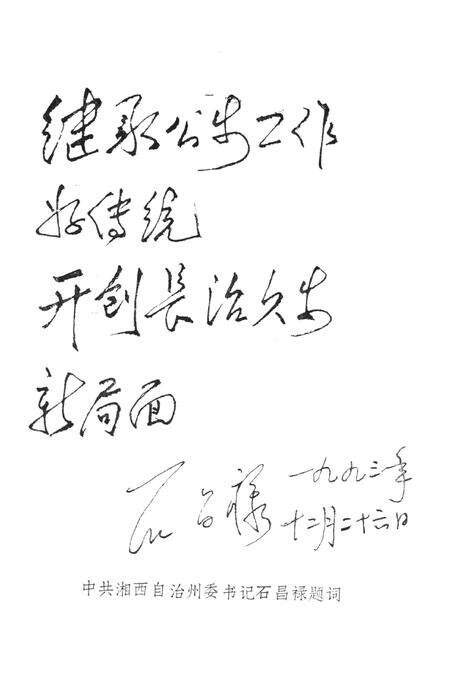 继承公安工作
好传统
开创長治久安
新局面
石昌禄
一九九三年
十二月二十六日
中共湘西自治州委书记石昌禄题词